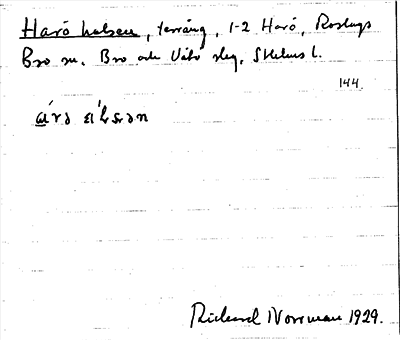 Harö halsen, terräng, 1-2 Harö, Roslags
Bro sn. Bro och Vätö slg, Sthlms l.
144.
Rickard Norrman 1929.